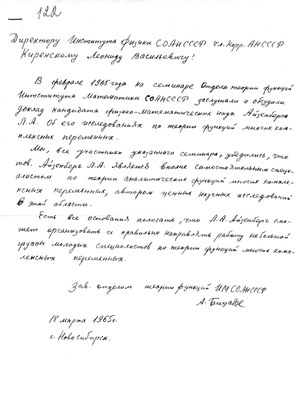 122
Директору Института Физики СОАНСССР чл.-корр. АНСССР
Киренскому Леониду Васильевичу!
В феврале 1965 года на семинаре Отдела теории функций
Института Математики СОАНСССР заслушали и обсудили
доклад кандидата физико-математических наук Айзенберга
Л.А. Об его исследованиях по теории функций многих ком-
плексных переменных.
Мы, все участники указанного семинара, убедились, что
тов. Айзенберг Л.А. является вполне самостоятельным специ-
алистом по теории аналитических функций многих компле-
ксных переменных, автором ценных научных исследований
в этой области.
Есть все основания полагать, что Л.А. Айзенберг смо-
жет организовать и правильно направлять работу небольшой
группы молодых специалистов по теории функций многих ком-
плексных переменных.
Зав. отделом теории функций ИМСОАНСССР
А. Бицадзе
18 марта 1965г.
г. Новосибирск.